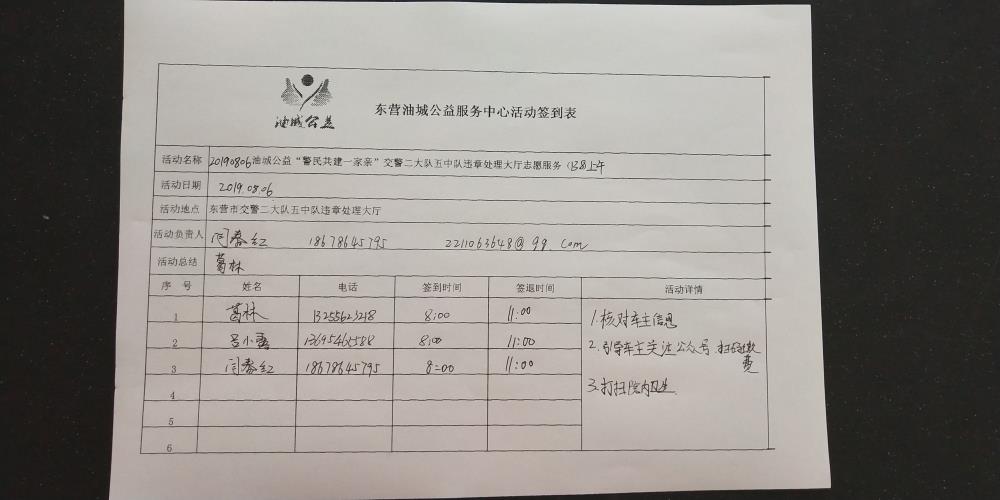 油城公益
东营油城公益服务中心活动签到表
活动名称 20190806油城公益“警民共建一家亲”交警二大队五中队违章处理大厅志愿服务 上午
活动日期 2019.08.06
活动地点 东营市交警二大队五中队违章处理大厅
活动负责人 闫春红 18678645795 2211063648@qq.com
活动总结 葛林
序 号 姓名 电话 签到时间 签退时间 活动详情
1 葛林 13255623218 8:00 11:00
2 吕小 13695461588 8:00 11:00
3 闫春红 18678645795 8:00 11:00
4
5
6
1.核对车主信息
2.引导车主关注公众号.扫码缴
费
3.打扫院内卫生.